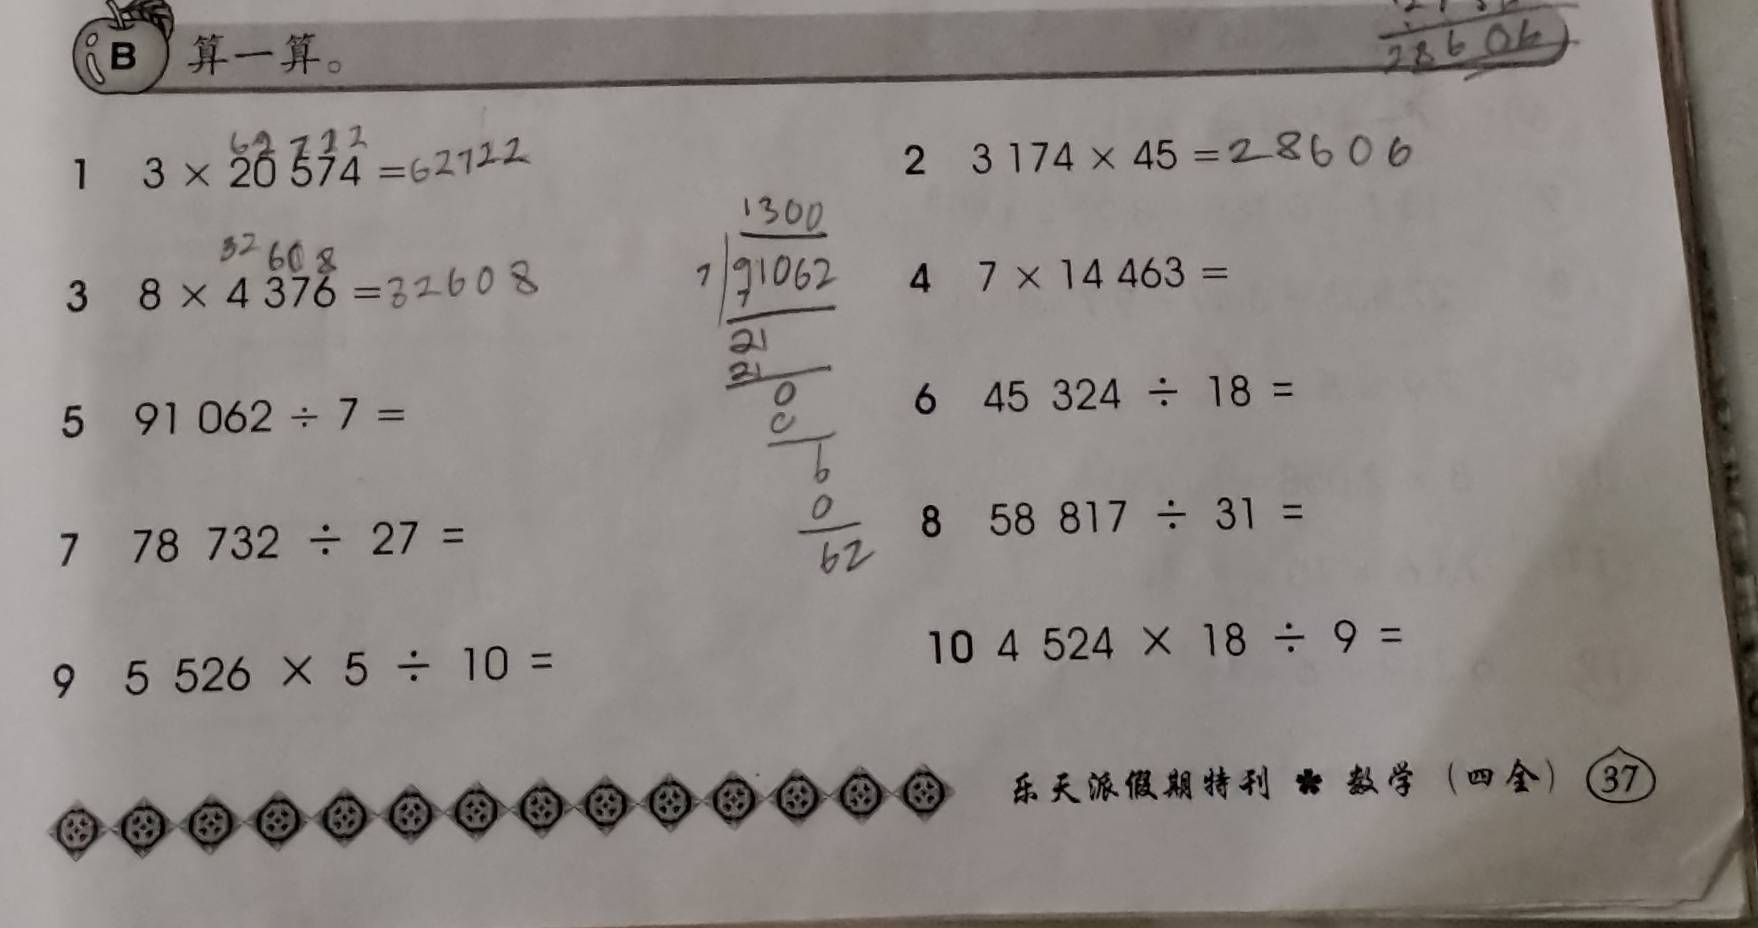 B 算一算。
28606
62722
1 3 × 20 574 = 62722
2 3 174 × 45 = 28606
32 608
3 8 × 4 376 = 32608
1300
7 91062
7
21
21
0
0
6
0
62
4 7 × 14 463 =
5 91 062 ÷ 7 =
6 45 324 ÷ 18 =
7 78 732 ÷ 27 =
8 58 817 ÷ 31 =
9 5 526 × 5 ÷ 10 =
10 4 524 × 18 ÷ 9 =
乐天派假期特刊 数学（四全） 37